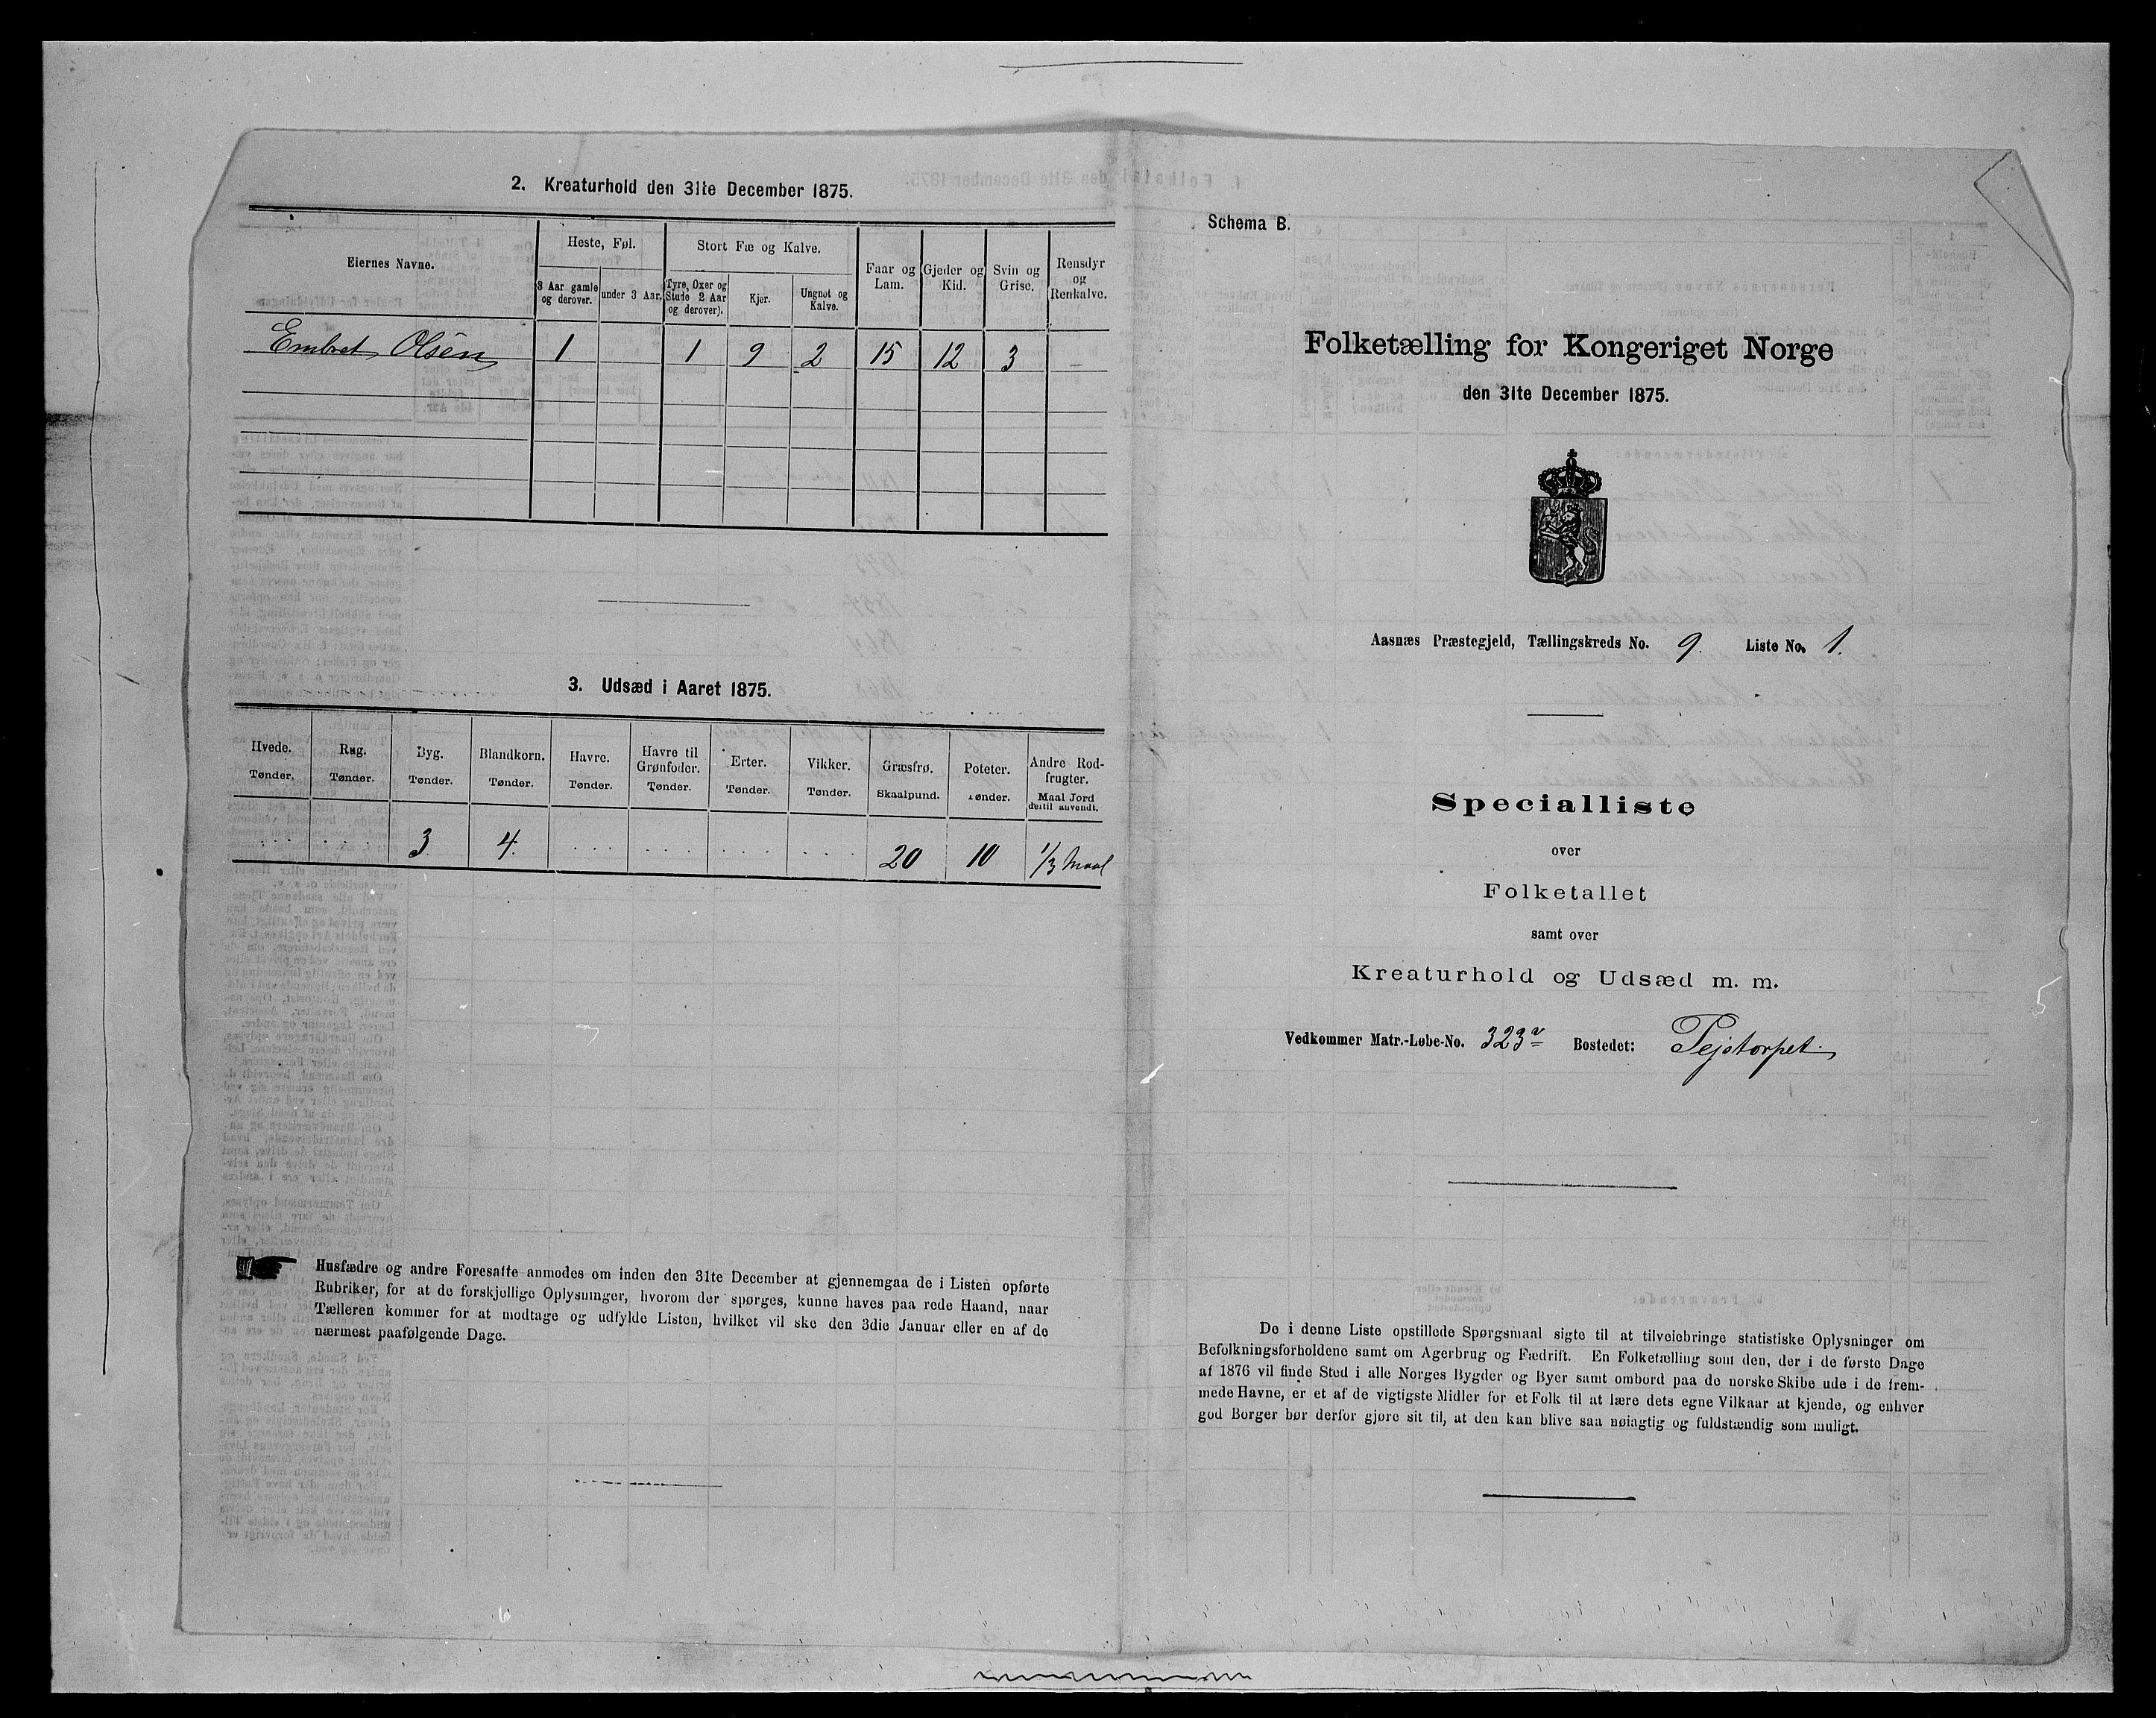 2. Kreaturhold den 31te December 1875.
Eiernes Navne.
Heste, Føl.
Stort Fæ og Kalve.
Faar og Lam.
Gjeder og Kid.
Svin og Grise.
Rensdyr og Renkalve.
3 Aar gamle og derover.
under 3 Aar.
Tyre, Oxer og Stude 2 Aar og derover).
Kjør.
Ungnøt og Kalve.
Embret Olsen 1 1 9 2 15 12 3 —
3. Udsæd i Aaret 1875.
Hvede. Rug. Byg. Blandkorn. Havre. Havre til Grønfoder. Erter. Vikker. Græsfrø. Poteter. Andre Rodfrugter.
Tønder. Tønder. Tønder. Tønder. Tønder. Tønder. Tønder. Tønder. Skaalpund. Tønder. Maal Jord dertil anvendt.
. . . . . . . 3 4. . . . . . . . . . . . . . . 20 10 1/3 Maal
Husfædre og andre Foresatte anmodes om inden den 31te December at gjennemgaa de i Listen opførte
Rubriker, for at de forskjellige Oplysninger, hvorom der spørges, kunne haves paa rede Haand, naar
Tælleren kommer for at modtage og udfylde Listen, hvilket vil ske den 3die Januar eller en af de
nærmest paafølgende Dage.
Schema B.
Folketælling for Kongeriget Norge
den 31te December 1875.
Aasnæs Præstegjeld, Tællingskreds No. 9. Liste No. 1.
Specialliste
over
Folketallet
samt over
Kreaturhold og Udsæd m. m.
Vedkommer Matr.-Løbe-No. 323 Bostedet: Pejstorpet
De i denne Liste opstillede Spørgsmaal sigte til at tilveiebringe statistiske Oplysninger om
Befolkningsforholdene samt om Agerbrug og Fædrift. En Folketælling som den, der i de første Dage
af 1876 vil finde Sted i alle Norges Bygder og Byer samt ombord paa de norske Skibe ude i de frem-
mede Havne, er et af de vigtigste Midler for et Folk til at lære dets egne Vilkaar at kjende, og enhver
god Borger bør derfor gjøre sit til, at den kan blive saa nøiagtig og fuldstændig som muligt.